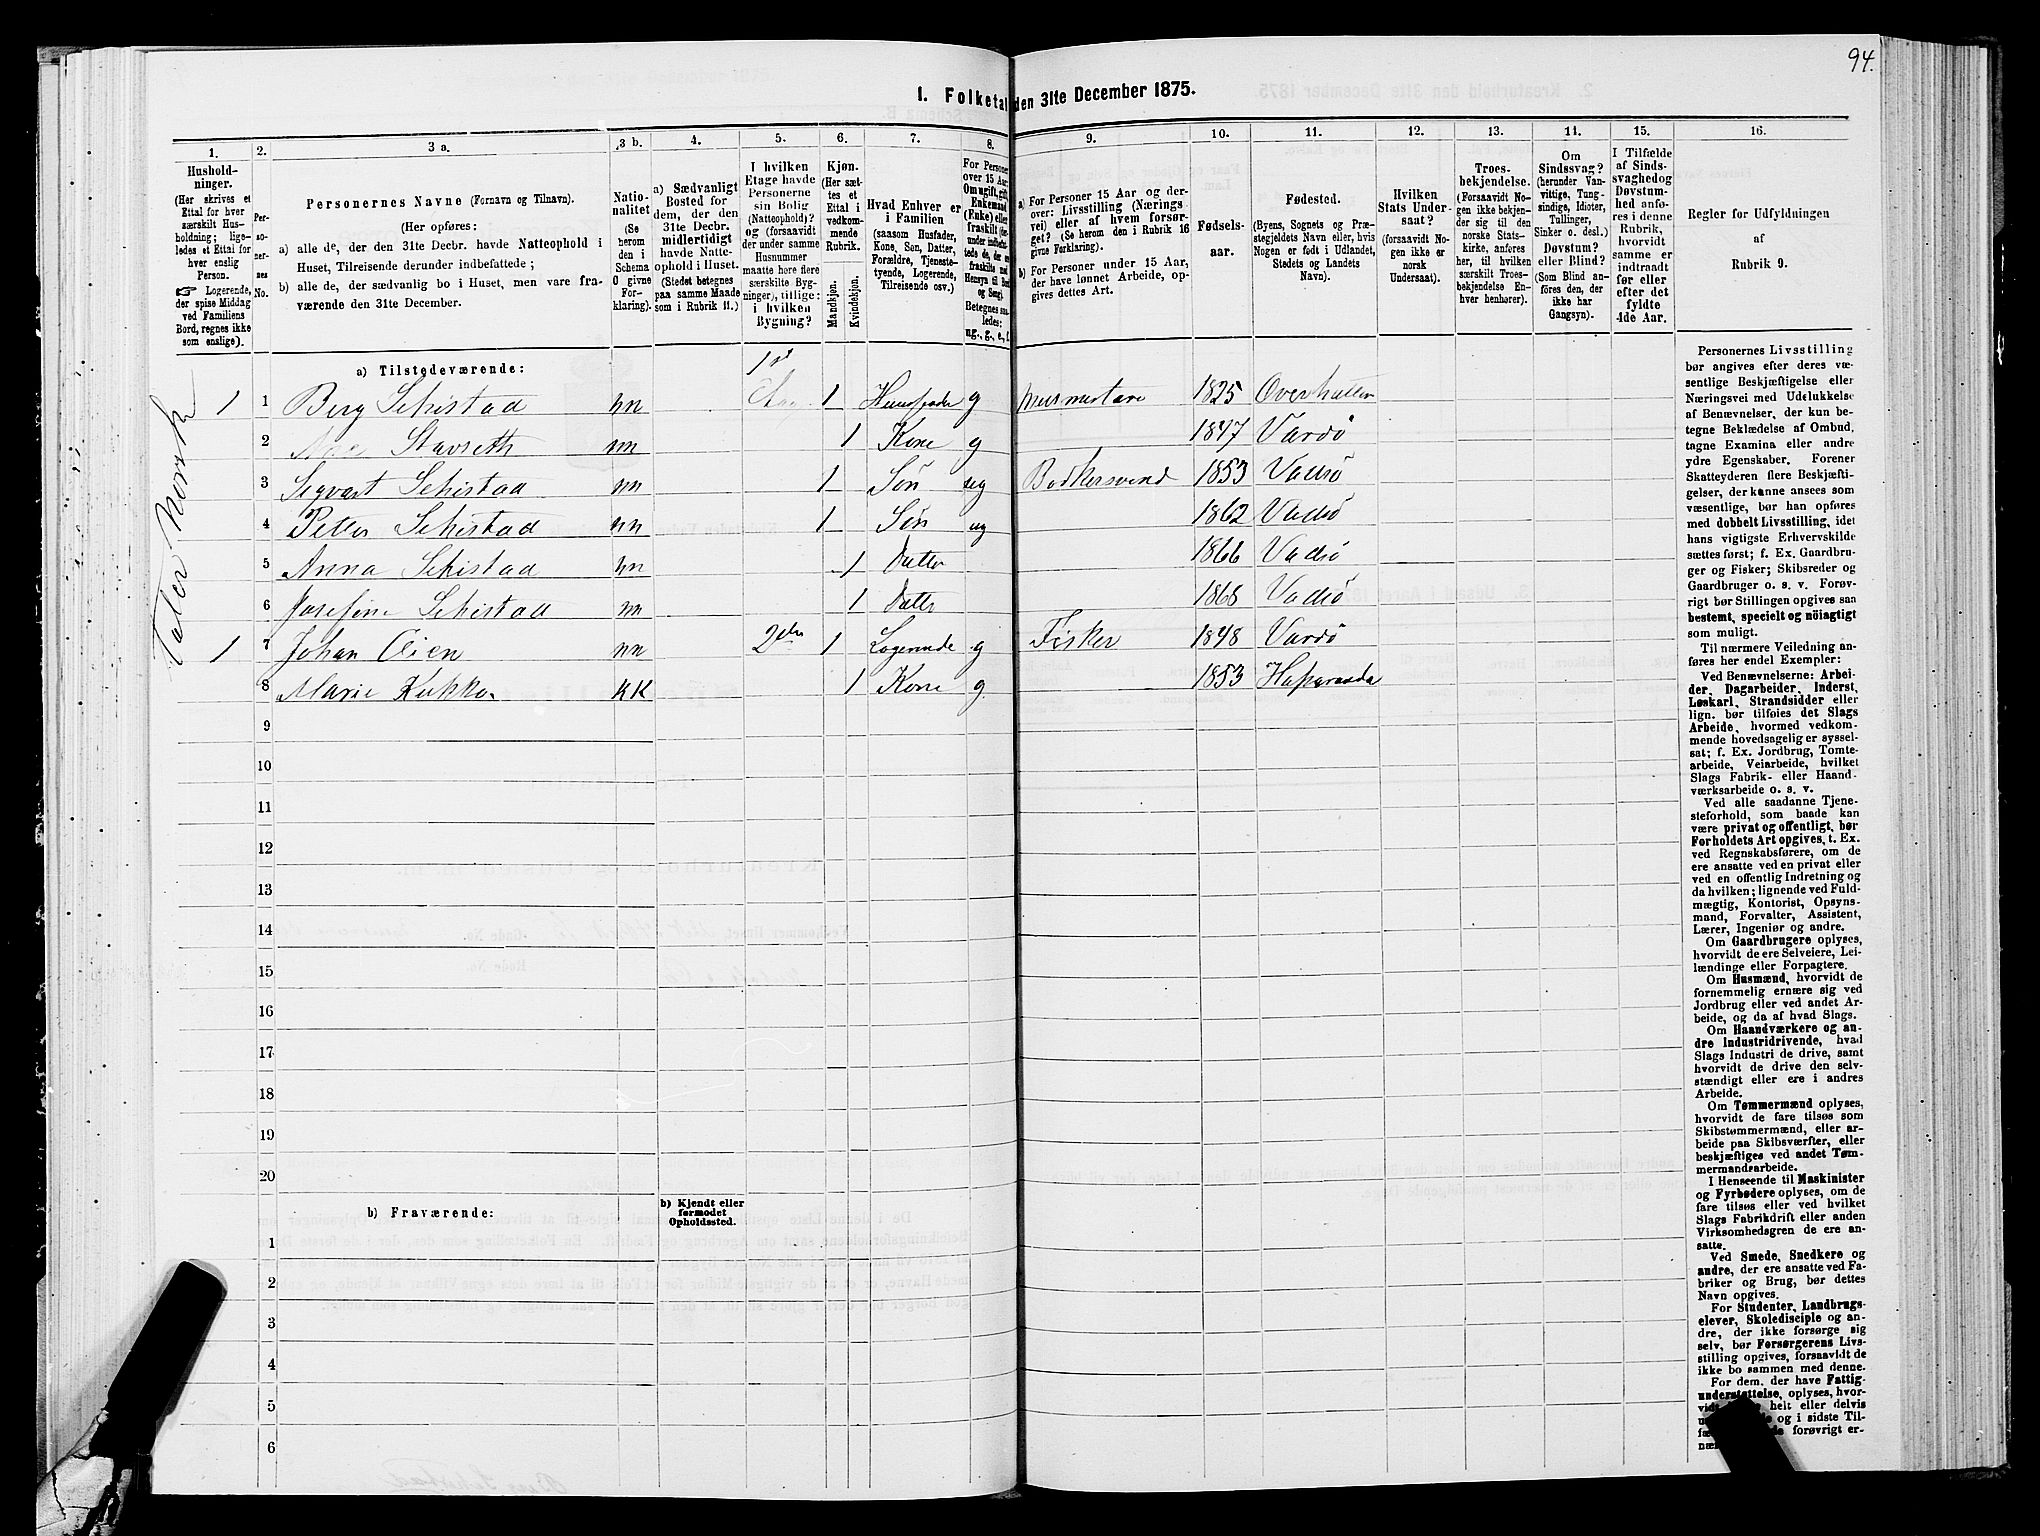 94.
I. Folketal den 31te December 1875.
1.
Hushold-
ninger.
(Her skrives et
Ettal for hver
særskilt Hus-
holdning; lige-
ledes et Ettal for
hver enslig
Person.
☞ Logerende,
der spise Middag
ved Familiens
Bord, regnes ikke
som enslige).
2.
Per-
so-
ner-
nes
No.
3 a.
Personernes Navne (Fornavn og Tilnavn).
(Her opføres:
a) alle de, der den 31te Decbr. havde Natteophold i
Huset, Tilreisende derunder indbefattede;
b) alle de, der sædvanlig bo i Huset, men vare fra-
værende den 31te December.
3 b.
Natio-
nalitet
(Se
herom
den i
Schema
0 givne
For-
klaring).
4.
a) Sædvanligt
Bosted for
dem, der den
31te Decbr.
midlertidigt
havde Natte-
ophold i Huset.
(Stedet betegnes
paa samme Maade
som i Rubrik 11.)
5.
I hvilken
Etage havde
Personerne
sin Bolig
(Natteophold)?
og (forsaavidt
der under samme
Husnummer
maatte høre flere
særskilte Byg-
ninger), tillige:
i hvilken
Bygning?
6.
Kjøn.
(Her sæt-
tes et
Ettal i
vedkom-
mende
Rubrik.
Mandkjøn.
Kvindekjøn.
7.
Hvad Enhver er
i Familien
(saasom Husfader,
Kone, Søn, Datter,
Forældre, Tjeneste-
tyende, Logerende,
Tilreisende osv.)
8.
For Personer
over 15 Aar:
Om ugift, gift,
Enkemand
(Enke) eller
fraskilt
Betegnes saa-
ledes:
ug., g., e., f.
9.
a) For Personer 15 Aar og der-
over: Livsstilling (Nærings-
vei) eller af hvem forsør-
get? (Se herom den i Rubrik 16
givne Forklaring).
b) For Personer under 15 Aar,
der have lønnet Arbeide, op-
gives dettes Art.
10.
Fødsels-
aar.
11.
Fødested.
(Byens, Sognets og Præ-
stegjeldets Navn eller, hvis
Nogen er født i Udlandet,
Stedets og Landets
Navn).
12.
Hvilken
Stats Under-
saat?
(forsaavidt No-
gen ikke er
norsk
Undersaat).
13.
Troes-
bekjendelse.
(Forsaavidt No-
gen ikke bekjen-
der sig til den
norske Stats-
kirke, anføres
her, til hvilken
særskilt Troes-
bekjendelse En-
hver henhører).
14.
Om
Sindssvag?
(herunder Van-
vittige, Tung-
sindige, Idioter,
Tullinger,
Sinker o. desl.)
Døvstum?
eller Blind?
(Som Blind an-
føres den, der
ikke har
Gangsyn).
15.
I Tilfælde
af Sinds-
svaghed og
Døvstum-
hed anfø-
res i denne
Rubrik,
hvorvidt
samme er
indtraadt
før eller
efter det
fyldte
4de Aar.
16.
Regler for Udfyldningen
af
Rubrik 9.
a) Tilstedeværende:
Taler Norsk
1 1 Berg Schistad nn 1st 1 Husfader g 1825
2 Stavseth nn 1 Kone g 1847 Vardö
3 Sigvart Schistad nn 1 Sön ug Bödkersvend 1853 Vadsö
4 Petter Schistad nn 1 Sön ug 1862 Vadsö
5 Anna Schistad nn 1 Datter 1866 Vadsö
6 Josefine Schistad nn 1 Datter 1868 Vadsö
1 7 Johan nn 2den 1 Logerende g Fisker 1848 Vardö
8 Marie Kukko KK 1 Kone g 1853 Haparanda
9
10
11
12
13
14
15
16
17
18
19
20
b) Fraværende:
b) Kjendt eller
formodet
Opholdssted.
1
2
3
4
5
6
Personernes Livsstilling
bør angives efter deres væ-
sentlige Beskjæftigelse eller
Næringsvei med Udelukkelse
af Benævnelser, der kun be-
tegne Beklædelse af Ombud,
tagne Examina eller andre
ydre Egenskaber. Forener
Skatteyderen flere Beskjæfti-
gelser, der kunne ansees som
væsentlige, bør han opføres
med dobbelt Livsstilling, idet
hans vigtigste Erhvervskilde
sættes først; f. Ex. Gaardbru-
ger og Fisker; Skibsreder og
Gaardbruger o. s. v. Forøv-
rigt bør Stillingen opgives saa
bestemt, specielt og nöiagtigt
som muligt.
Til nærmere Veiledning an-
føres her endel Exempler:
Ved Benævnelserne: Arbei-
der, Dagarbeider, Inderst,
Løskarl, Strandsidder eller
lign. bør tilføies det Slags
Arbeide, hvormed vedkom-
mende hovedsagelig er syssel-
sat; f. Ex. Jordbrug, Tomte-
arbeide, Veiarbeide, hvilket
Slags Fabrik- eller Haand-
værksarbeide o. s. v.
Ved alle saadanne Tjene-
steforhold, som baade kan
være privat og offentligt, bør
Forholdets Art opgives, t. Ex.
ved Regnskabsførere, om de
ere ansatte ved en privat eller
ved en offentlig Indretning og
da hvilken; lignende ved Fuld-
mægtig, Kontorist, Opsyns-
mand, Forvalter, Assistent,
Lærer, Ingeniør og andre.
Om Gaardbrugere oplyses,
hvorvidt de ere Selveiere, Lei-
lændinge eller Forpagtere.
Om Husmænd, hvorvidt de
fornemmelig ernære sig ved
Jordbrug eller ved andet Ar-
beide, og da af hvad Slags.
Om Haandværkere og an-
dre Industridrivende, hvad
Slags Industri de drive, samt
hvorvidt de drive den selv-
stændigt eller ere i andres
Arbeide.
Om Tømmermænd oplyses,
hvorvidt de fare tilsøs som
Skibstømmermænd, eller ar-
beide paa Skibsværfter, eller
beskjæftiges ved andet Tøm-
mermandsarbeide.
I Henseende til Maskinister
og Fyrbødere oplyses, om de
fare tilsøs eller ved hvilket
Slags Fabrikdrift eller anden
Virksomhedsgren de ere an-
satte.
Ved Smede, Snedkere og
andre, der ere ansatte ved Fa-
briker og Brug, bør dettes
Navn opgives.
For Studenter, Landbrugs-
elever, Skoledisciple og an-
dre, der ikke forsørge sig
selv, bør Forsørgerens Livs-
stilling opgives, forsaavidt de
ikke bo sammen med denne.
For dem, der have Fattig-
understøttelse, oplyses, hvor-
helt eller delvis
og i sidste Til-
forøvrigt er-